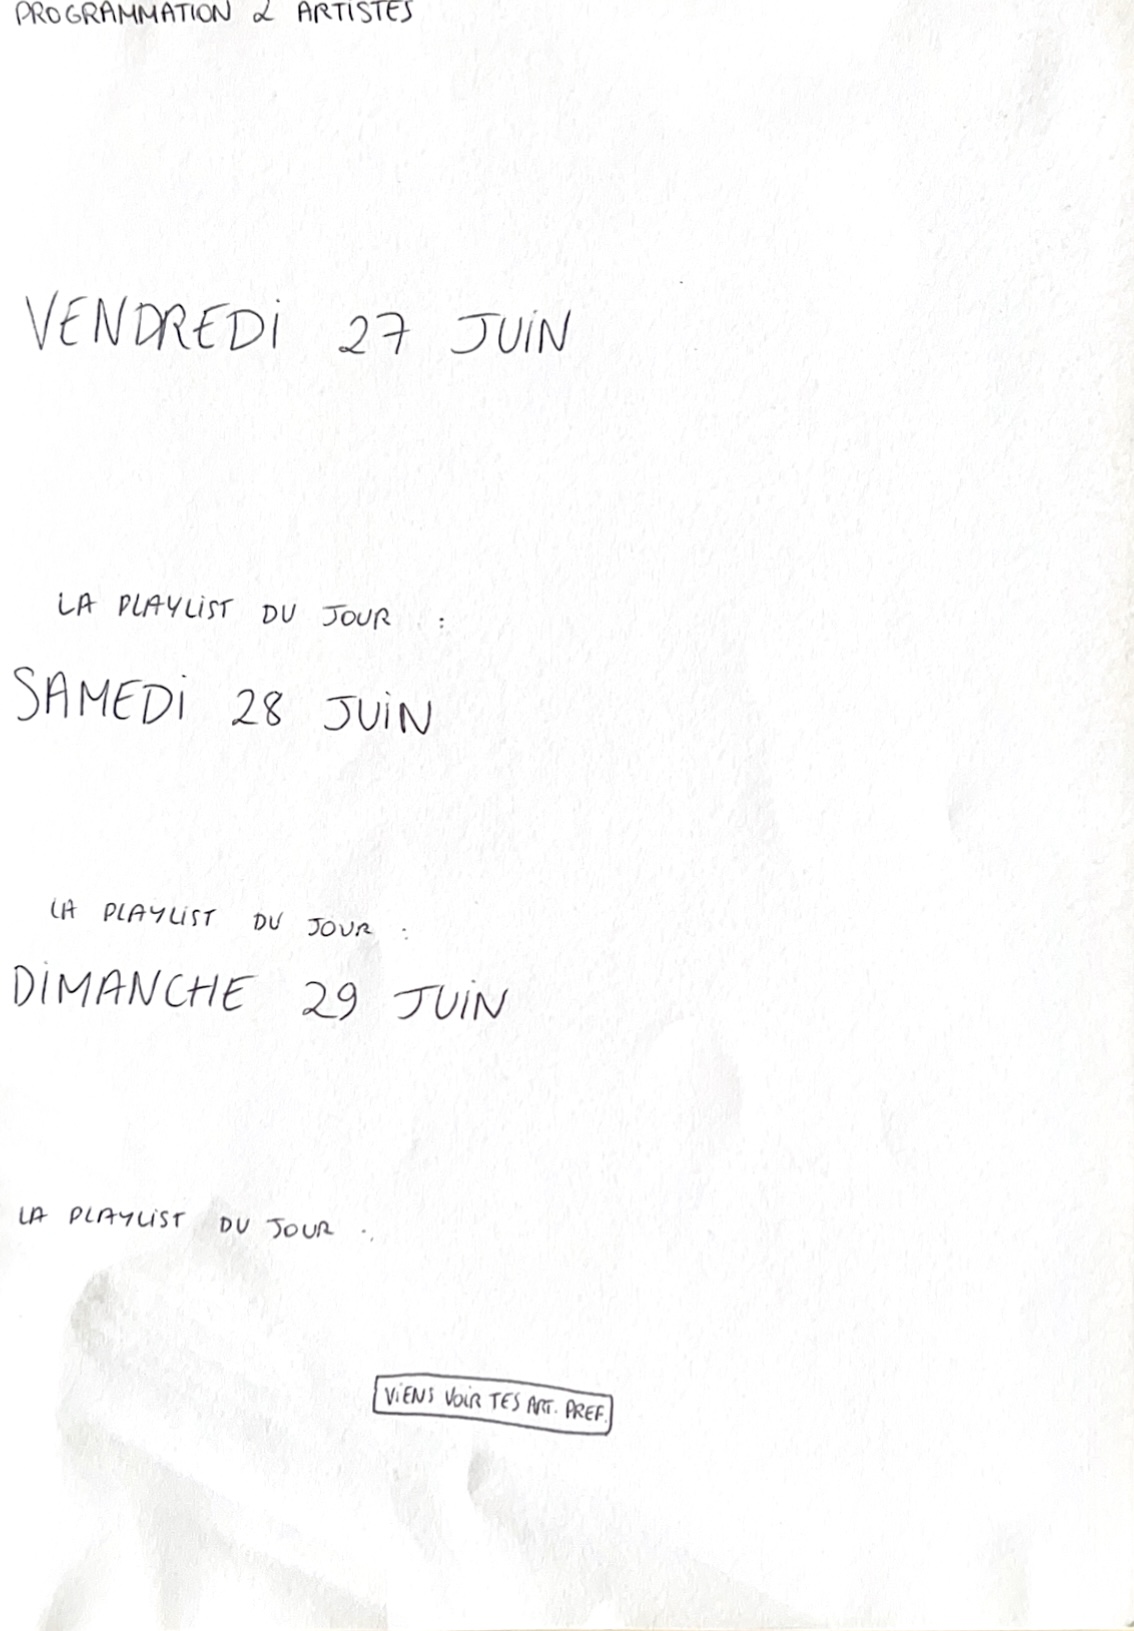 PROGRAMMATION & ARTISTES
VENDREDI 27 JUIN
LA PLAYLIST DU JOUR :
SAMEDI 28 JUIN
LA PLAYLIST DU JOUR :
DIMANCHE 29 JUIN
LA PLAYLIST DU JOUR :
VIENS VOIR TES ART. PREF.